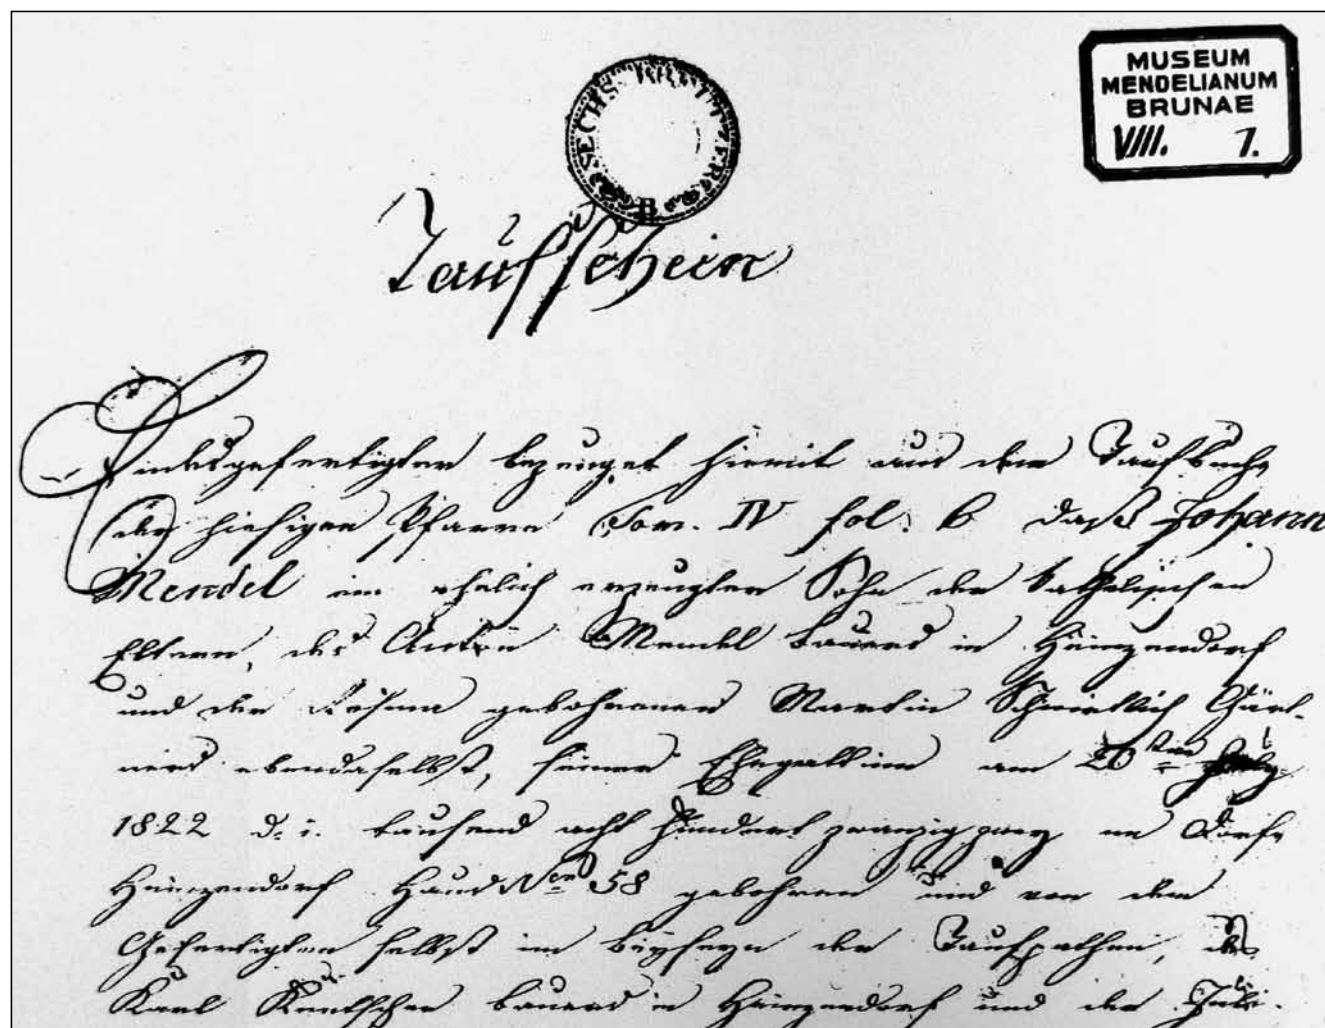 MUSEUM
MENDELIANUM
BRUNAE
VIII. 7.
SECHS KREUTZER
B
Taufschein
Endesgefertigter bezeuget hiemit aus dem Taufbuche
der hiesigen Pfarre Tom. IV fol: 6 daß Johann
Mendel ein ehelich erzeugter Sohn der katholischen
Eltern, des Anton Mendel Bauers in Heinzendorf
und der Rosina gebohrenen Martin Schwirtlich Gärt-
ners ebendaselbst, seiner Ehegattinn am 20ten July
1822 d. i. tausend acht hundert zwanzig zwey im Dorfe
Heinzendorf Haus Nro 58 gebohren und von dem
Gefertigten selbst im Beyseyn der Taufpathen, des
Karl Bauers in Heinzendorf und der Juli-